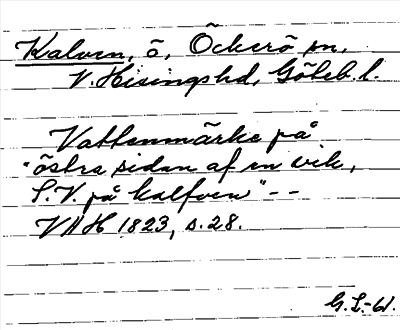 Kalven, ö, Öckerö sn,
V. Hisings hd, Göteb. l.
Vattenmärke på
"östra sidan af en vik,
S.V. på Kalfven" --
VAH 1823, s. 28.
G.L.-61.